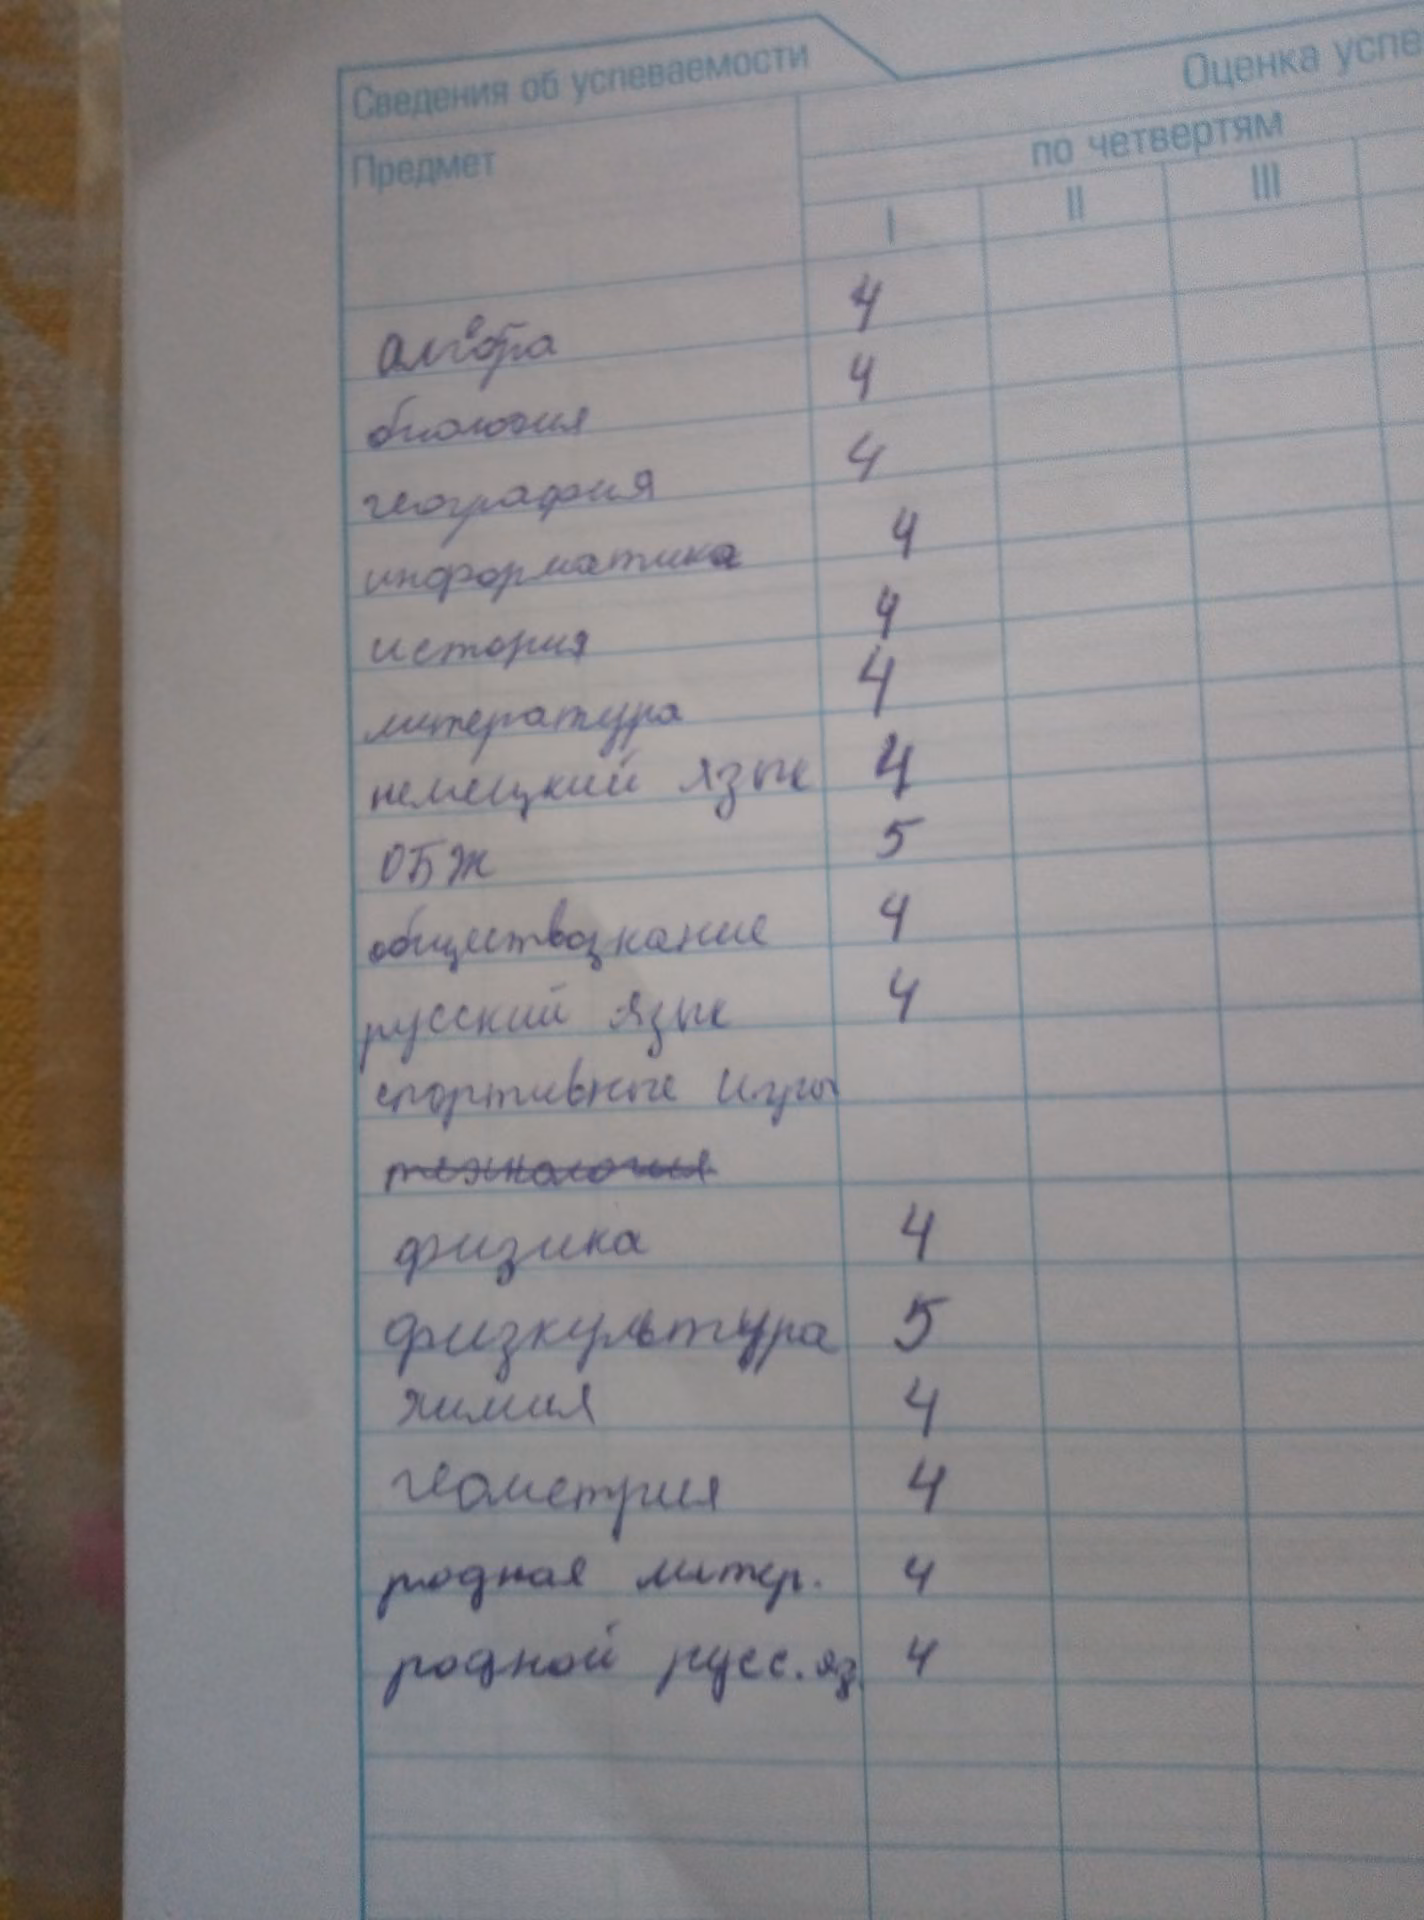 Сведения об успеваемости
Оценка успе
Предмет
по четвертям
I II III
алгебра 4
биология 4
география 4
информатика 4
история 4
литература 4
немецкий язык 4
ОБЖ 5
обществознание 4
русский язык 4
спортивные игры
технология
физика 4
физкультура 5
химия 4
геометрия 4
родная литер. 4
родной русс. яз 4